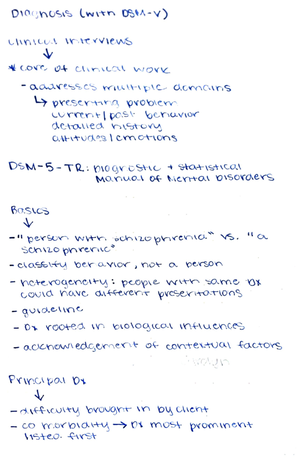 Diagnosis (with DSM-V)
clinical interviews
↓
* core of clinical work
- addresses multiple domains
↳ presenting problem
current/past behavior
detailed history
attitudes/emotions
DSM-5-TR: Diagnostic + Statistical
Manual of Mental Disorders
Basics
↓
- "person with schizophrenia" vs. "a
schizophrenic"
- classify behavior, not a person
- heterogeneity: people with same Dx
could have different presentations
- guideline
- Dx rooted in biological influences
- acknowledgement of contextual factors
Principal Dx
↓
- difficulty brought in by client
- comorbidity → Dx most prominent
listed first